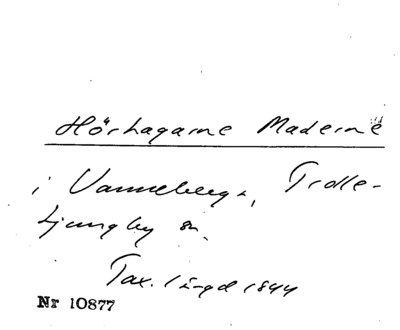 Hörhagarne Maderne
i Vanneberga, Trolle-
Ljungby sn.
Tax. längd 1844
Nr 10877